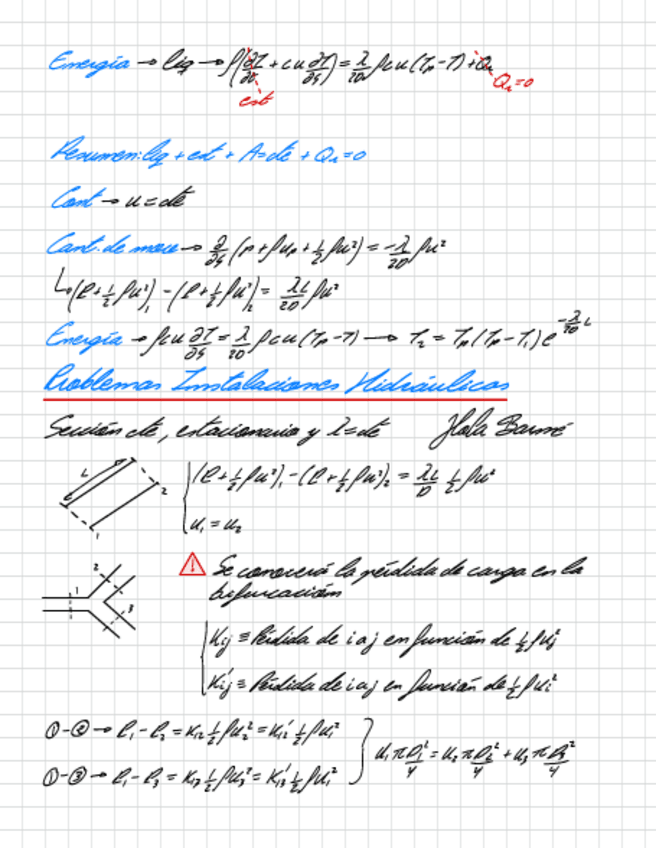 Energía → liq → ρ(∂T/∂t + c u ∂T/∂s) = λ/2D ρ c u (Tp - T) + Qr
est
Qr = 0
Resumen: liq + est + A = cte + Qr = 0
Cont → u = cte
Cant. de mov → ∂/∂s (p + ρUp + 1/2 ρu²) = -λ/2D ρu²
↳ (P + 1/2 ρu²)₁ - (P + 1/2 ρu²)₂ = λL/2D ρu²
Energía → ρcu ∂T/∂s = λ/2D ρcu (Tp - T) → T₂ = Tp (Tp - T₁) e^(-λ/2D L)
Problemas Instalaciones Hidráulicas
Sección cte, estacionario y λ = cte
L
2
1
(P + 1/2 ρu²)₁ - (P + 1/2 ρu²)₂ = λL/D 1/2 ρu²
u₁ = u₂
⚠ Se conocerá la pérdida de carga en la
bifurcación
2
1
3
Kij ≡ Pérdida de i a j en función de 1/2 ρuj²
K'ij ≡ Pérdida de i a j en función de 1/2 ρui²
①-② → P₁ - P₂ = K₁₂ 1/2 ρu₂² = K₁₂' 1/2 ρu₁²
①-③ → P₁ - P₃ = K₁₃ 1/2 ρu₃² = K₁₃' 1/2 ρu₁²
u₁ π D₁²/4 = u₂ π D₂²/4 + u₃ π D₃²/4